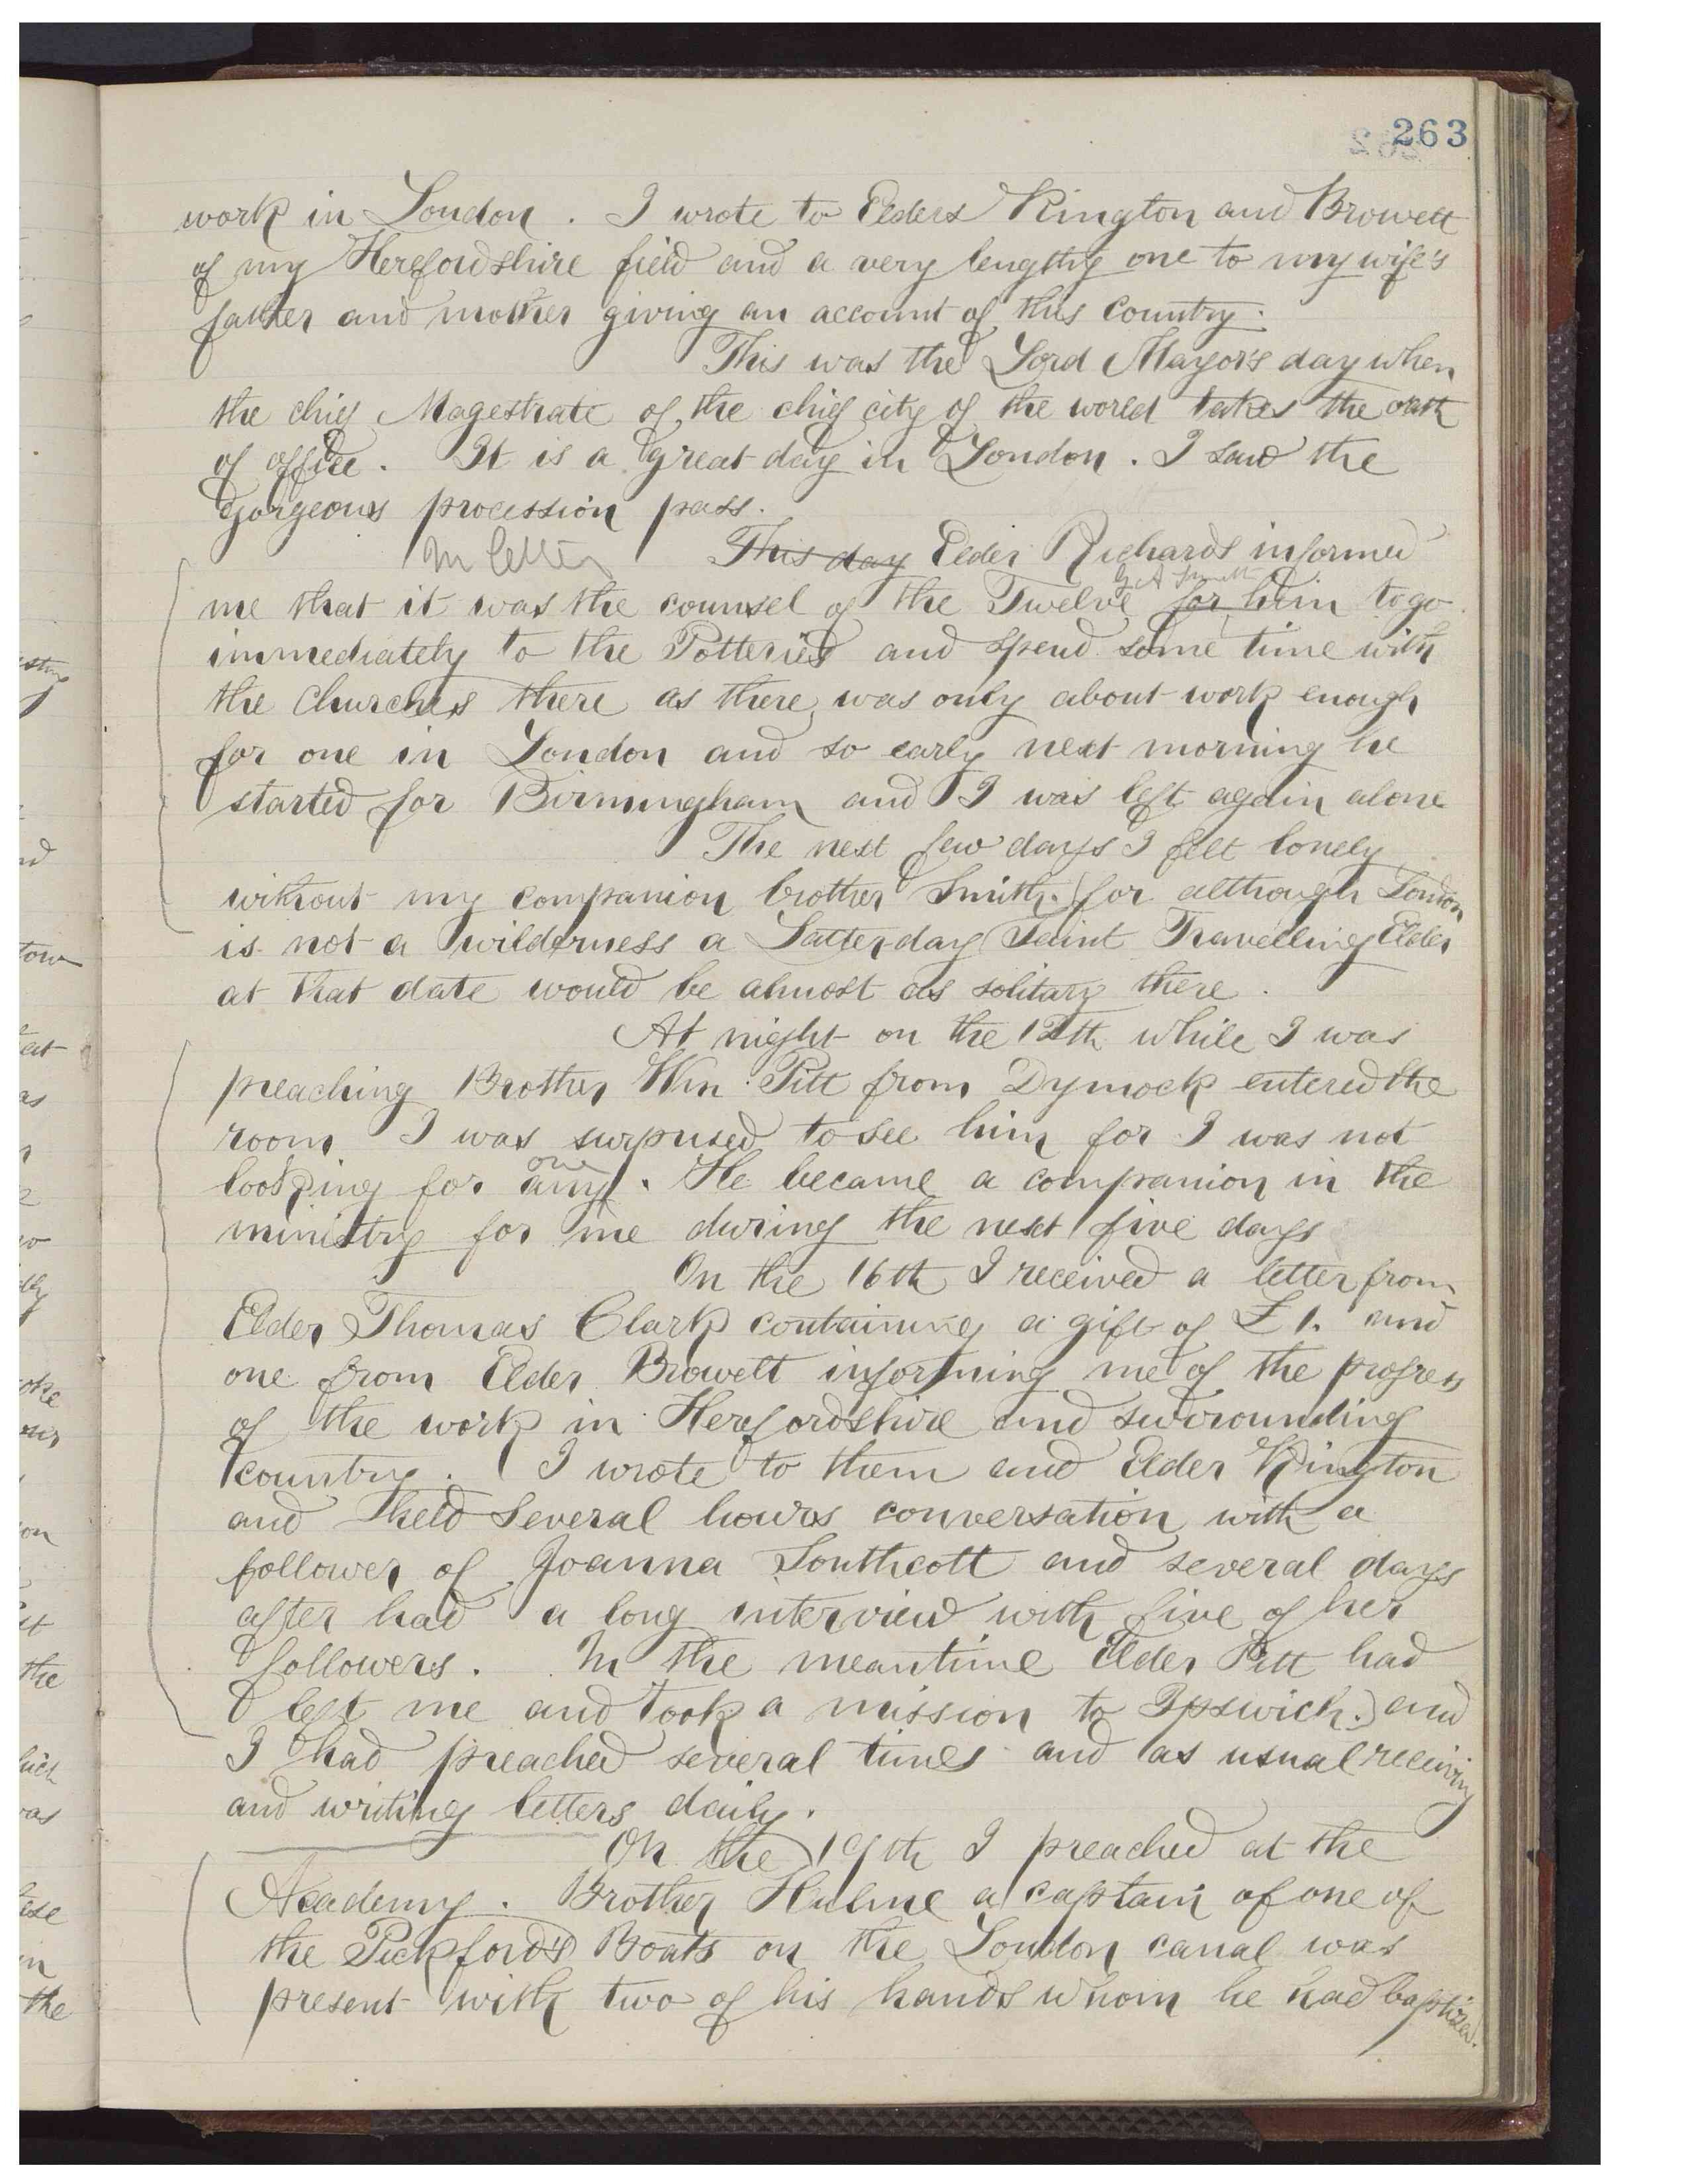 263
work in London. I wrote to Elders Kington and Browett
of my Herefordshire field and a very lengthy one to my wife's
father and mother giving an account of this country.
This was the Lord Mayor's day when
the chief Magestrate of the chief city of the world takes the oath
of office. It is a great day in London. I saw the
gorgeous procession pass.
In letter This day Elder Richards informed
G A Smith
me that it was the counsel of the Twelve for him to go
immediately to the Potteries and spend some time with
the Churches there as there was only about work enough
for one in London and so early next morning he
started for Birmingham and I was left again alone
The next few days I felt lonely
without my companion brother Smith. for although London
is not a wilderness a Latter-day Saint Travelling Elder
at that date would be almost as solitary there.
At night on the 12th while I was
preaching Brother Wm Pitt from Dymock entered the
room I was surprised to see him for I was not
one
looking for any. He became a companion in the
ministry for me during the next five days
On the 16th I received a letter from
Elder Thomas Clark containing a gift of £1. and
one from Elder Browett informing me of the progress
of the work in Herefordshire and surrounding
country. I wrote to them and Elder Kington
and held several hours conversation with a
follower of Joanna Southcott and several days
after had a long interview with five of her
followers. In the meantime Elder Pitt had
left me and took a mission to Ipswich.) and
I had preached several times and as usual receiving
and writing letters daily.
On the 19th I preached at the
Academy. Brother Hulme a captain of one of
the Pickford's Boats on the London canal was
present with two of his hands whom he had baptized.